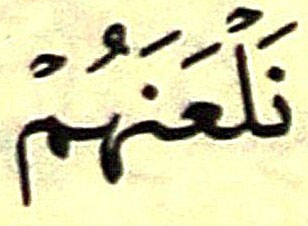 نَلْعَنَهُمْ